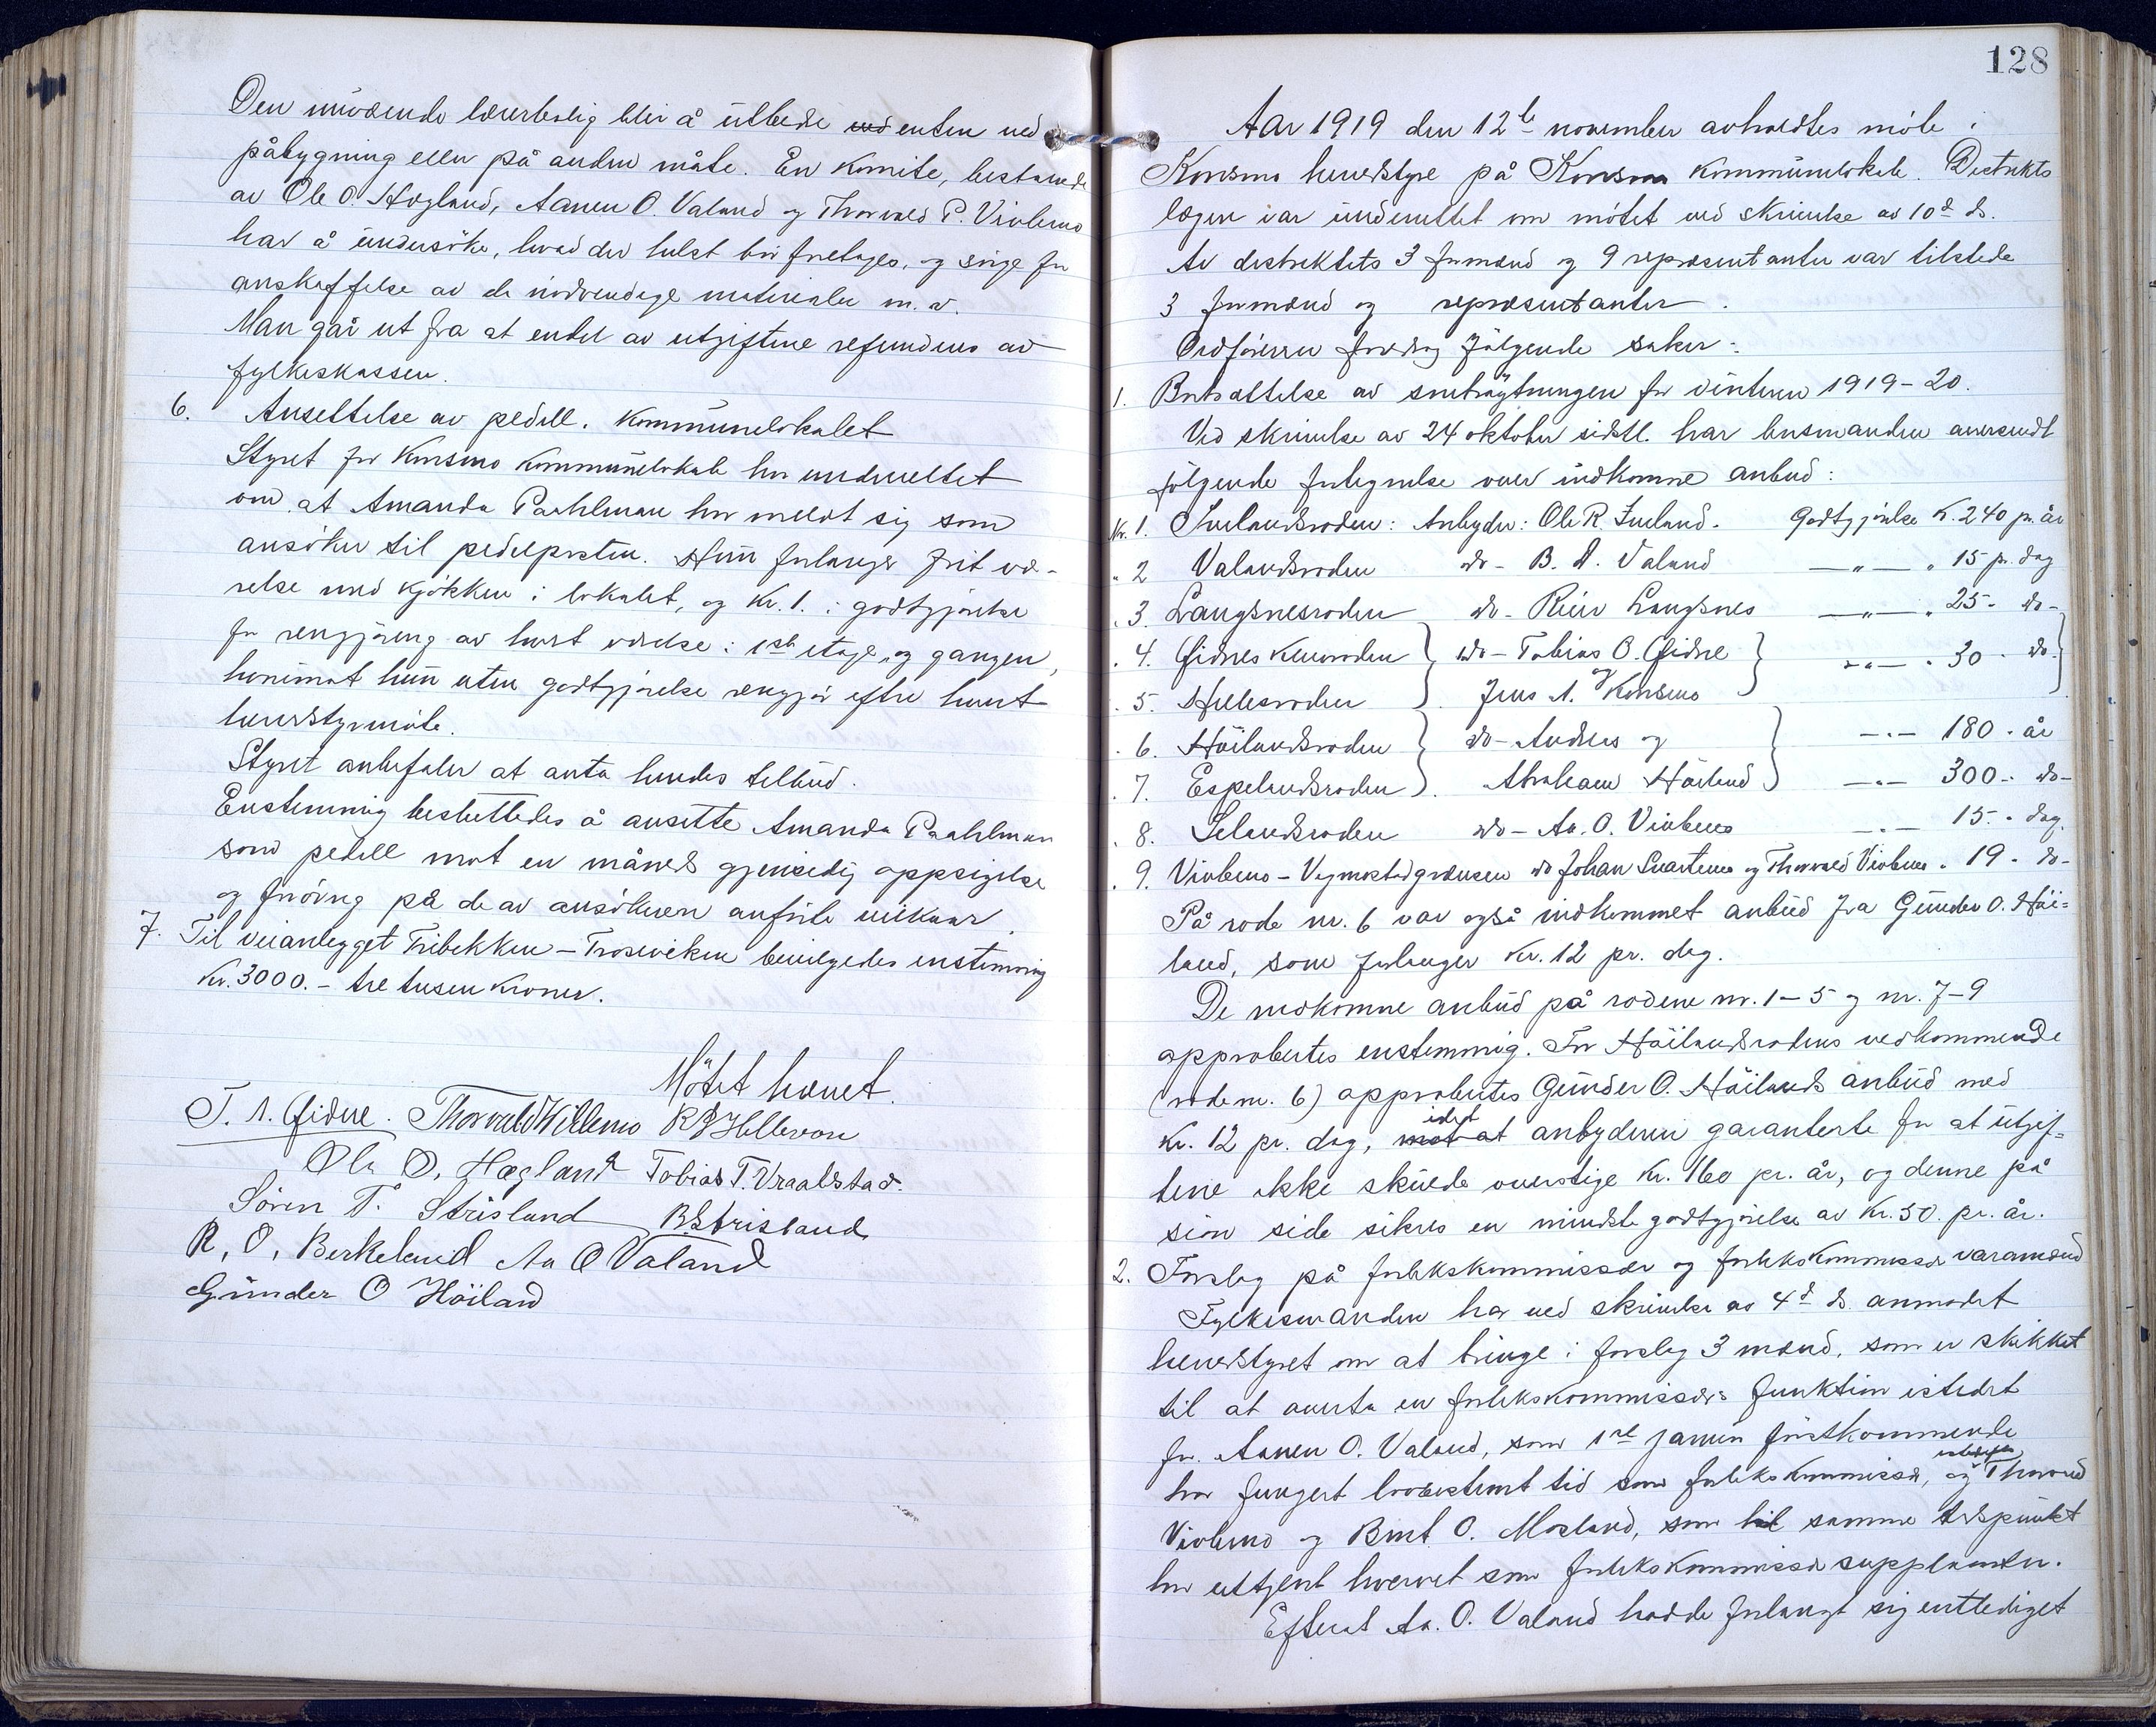 Den nuværende lærerbolig blir å utbedre ved enten ved
påbygning eller på anden måte. En komite, bestaaende
av Ole O. Hægland, Aanen O. Valand og Thorvald P. Vivlemo
har å undersöke, hvad der helst bör foretages, og sörge for
anskaffelse av de nödvendige materialer m.v.
Man går ut fra at endel av utgiftene refunderes av
fylkeskassen.
6. Ansettelse av pedell. Kommunelokalet
Styret for Konsmo kommunelokale har underrettet
om at Amanda Paahlman har meldt sig som
ansöker til pedelposten. Hun forlanger frit væ-
relse med kjökken i lokalet, og Kr. 1. i godtgjörelse
for rengjöring av hvert værelse i 1ste etage og gangen,
hvorimot hun uten godtgjörelse rengjör efter hvert
herredstyremöte.
Styret anbefaler at anta hendes tilbud.
Enstemmig besluttedes å ansette Amanda Paahlman
som pedell mot en måneds gjensidig oppsigelse
og forövrig på de av ansökeren anförte vilkaar.
7. Til veianlegget Fribekken - Trosviken bevilgedes enstemmig
Kr. 3000.- tre tusen kroner.
Mötet hævet.
T. A. Eidne. Thorvald Willemo R J Hellevon
Ole O. Hægland Tobias T. Vraalstad.
Sören T. Strisland B. Strisland
R. O. Berkeland Aa O Valand
Günder O Höiland
128
Aar 1919 den 12te november avholdtes möte i
Konsmo herredstyre på Konsmo kommunelokale. Distrikts
lægen var underrettet om mötet ved skrivelse av 10de ds.
Av distriktets 3 formænd og 9 repræsentanter var tilstede
3 formænd og repræsentanter.
Ordföreren foredrog fölgende saker:
1. Bortsættelse av snebröitningen for vinteren 1919-20.
Ved skrivelse av 24 oktober sidstl. har lensmanden oversendt
fölgende fortegnelse over indkomne anbud:
Nr. 1. Ivelandsroden: Anbyder: Ole R. Iveland. Godtgjörelse K. 240 pr. år
" 2 Valandsroden do - B. A. Valand —"— " 15 pr. dag
" 3. Laugsnesroden do - Reier Laugsnes —"— " 25- do-
" 4. Eidneskleivroden } do - Tobias O. Eidne } —"— " 30 - do-
" 5. Hellesroden } og Jens A. Konsmo
" 6. Höilandsroden } do - Anders og } —"— 180 - år
" 7. Espelandsroden } Abraham Höiland } —"— 300- do-
" 8. Selandsroden do - Aa. O. Vivlemo —"— 15 - dag.
" 9. Vivlemo - Vegmostadgrænsen do Johan Svartemo og Thorvald Vivlemo " 19 - do-
På rode nr. 6 var også indkommet anbud fra Günder O. Höi=
land, som forlanger Kr. 12 pr. dag.
De indkomne anbud på rodene nr. 1-5 og nr. 7-9
approbertes enstemmig. For Höilandsrodens vedkommende
(rode nr. 6) approbertes Günder O. Höilands anbud med
Kr. 12 pr. dag, mot at anbyderen garanterte for at utgif=
tene ikke skulde overstige Kr. 160 pr. år, og denne på
sin side sikres en mindste godtgjörelse av Kr. 50. pr. år.
2. Forslag på forlikskommissær og forlikskommissær varamænd
Fylkesmanden har ved skrivelse av 4de ds. anmodet
herredstyret om at bringe i forslag 3 mænd, som er skikket
til at overta en forlikskommissærs funktion istedet
for Aanen O. Valand, som 1ste januar förstkommende
har fungert lovbestemt tid som forlikskommissær, og Thorvald
Vivlemo og Bernt O. Mosland, som til samme tidspunkt
har uttjent hvervet som forlikskommissærsuppleanter.
Efterat Aa. O. Valand hadde forlangt sig entlediget